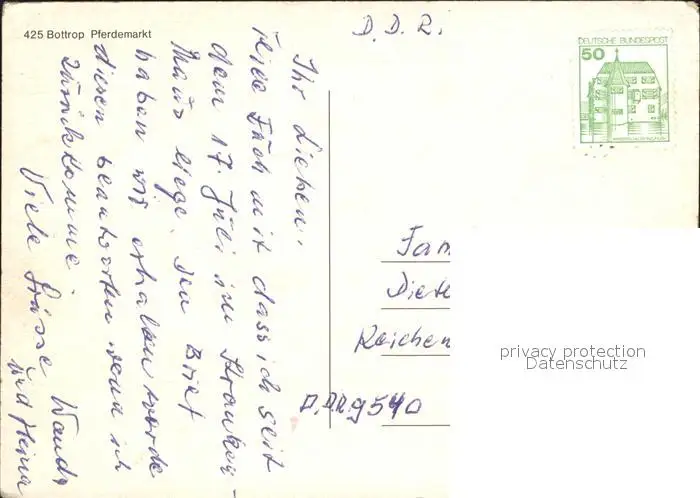 425 Bottrop Pferdemarkt
D.D.R.
DEUTSCHE BUNDESPOST
50
Ihr Lieben!
Teile Euch mit dass ich seit
dem 17. Juli im Kranken-
Haus liege. Den Brief
haben wir erhalten werde
diesen beantworten wenn ich
zurückkomme.
Viele Grüsse Wanda
und Heina
Fam
Diete
Reichen
D.D.R. 9540
privacy protection
Datenschutz